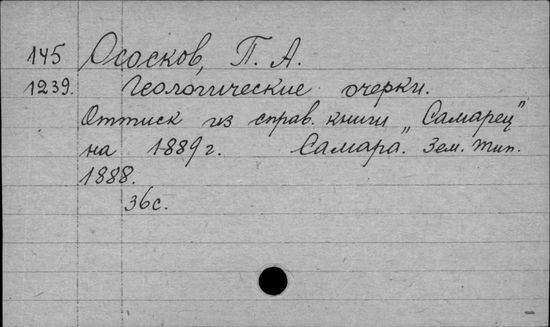 145 Ососков, П. А.
1239. Геологические очерки.
Оттиск из справ. книги „Самарец"
на 1889 г. Самара. Зем. тип.
1888.
36 с.